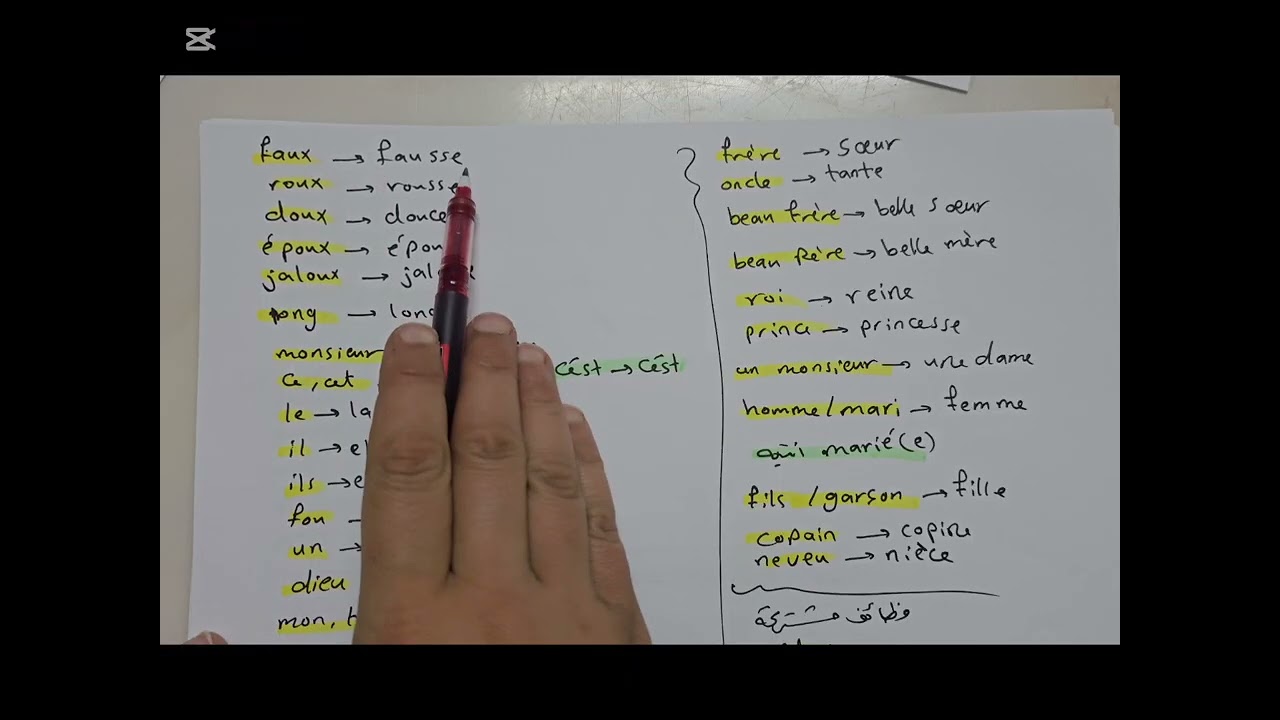 faux → fausse
roux → rousse
doux → douce
époux → épou
jaloux → jal
long → long
monsieur
ce, cet
c'est → c'est
le → la
il → e
ils → e
fou →
un →
dieu
mon,
frère → sœur
oncle → tante
beau frère → belle sœur
beau père → belle mère
roi → reine
prince → princesse
un monsieur → une dame
homme/mari → femme
marié(e)
fils/garson → fille
copain → copine
neveu → nièce
وظائف مشتركة